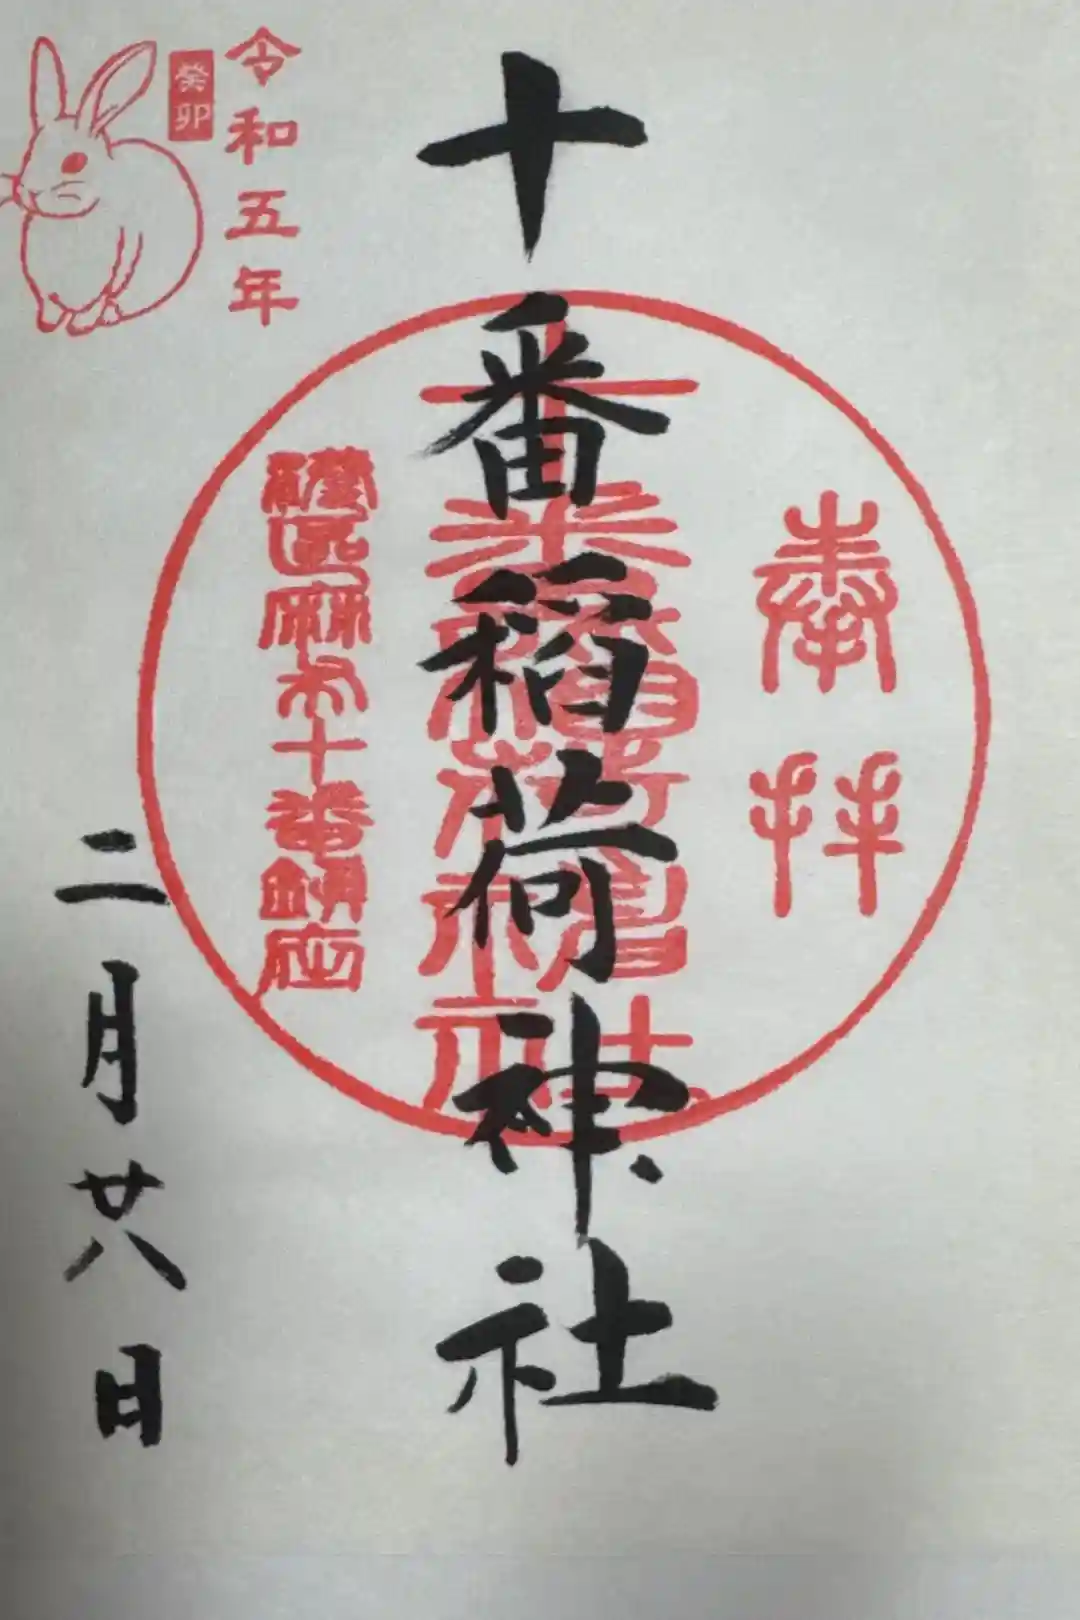 奉拝
十番稲荷神社
港区麻布十番鎮座
令和五年
癸卯
二月廿八日